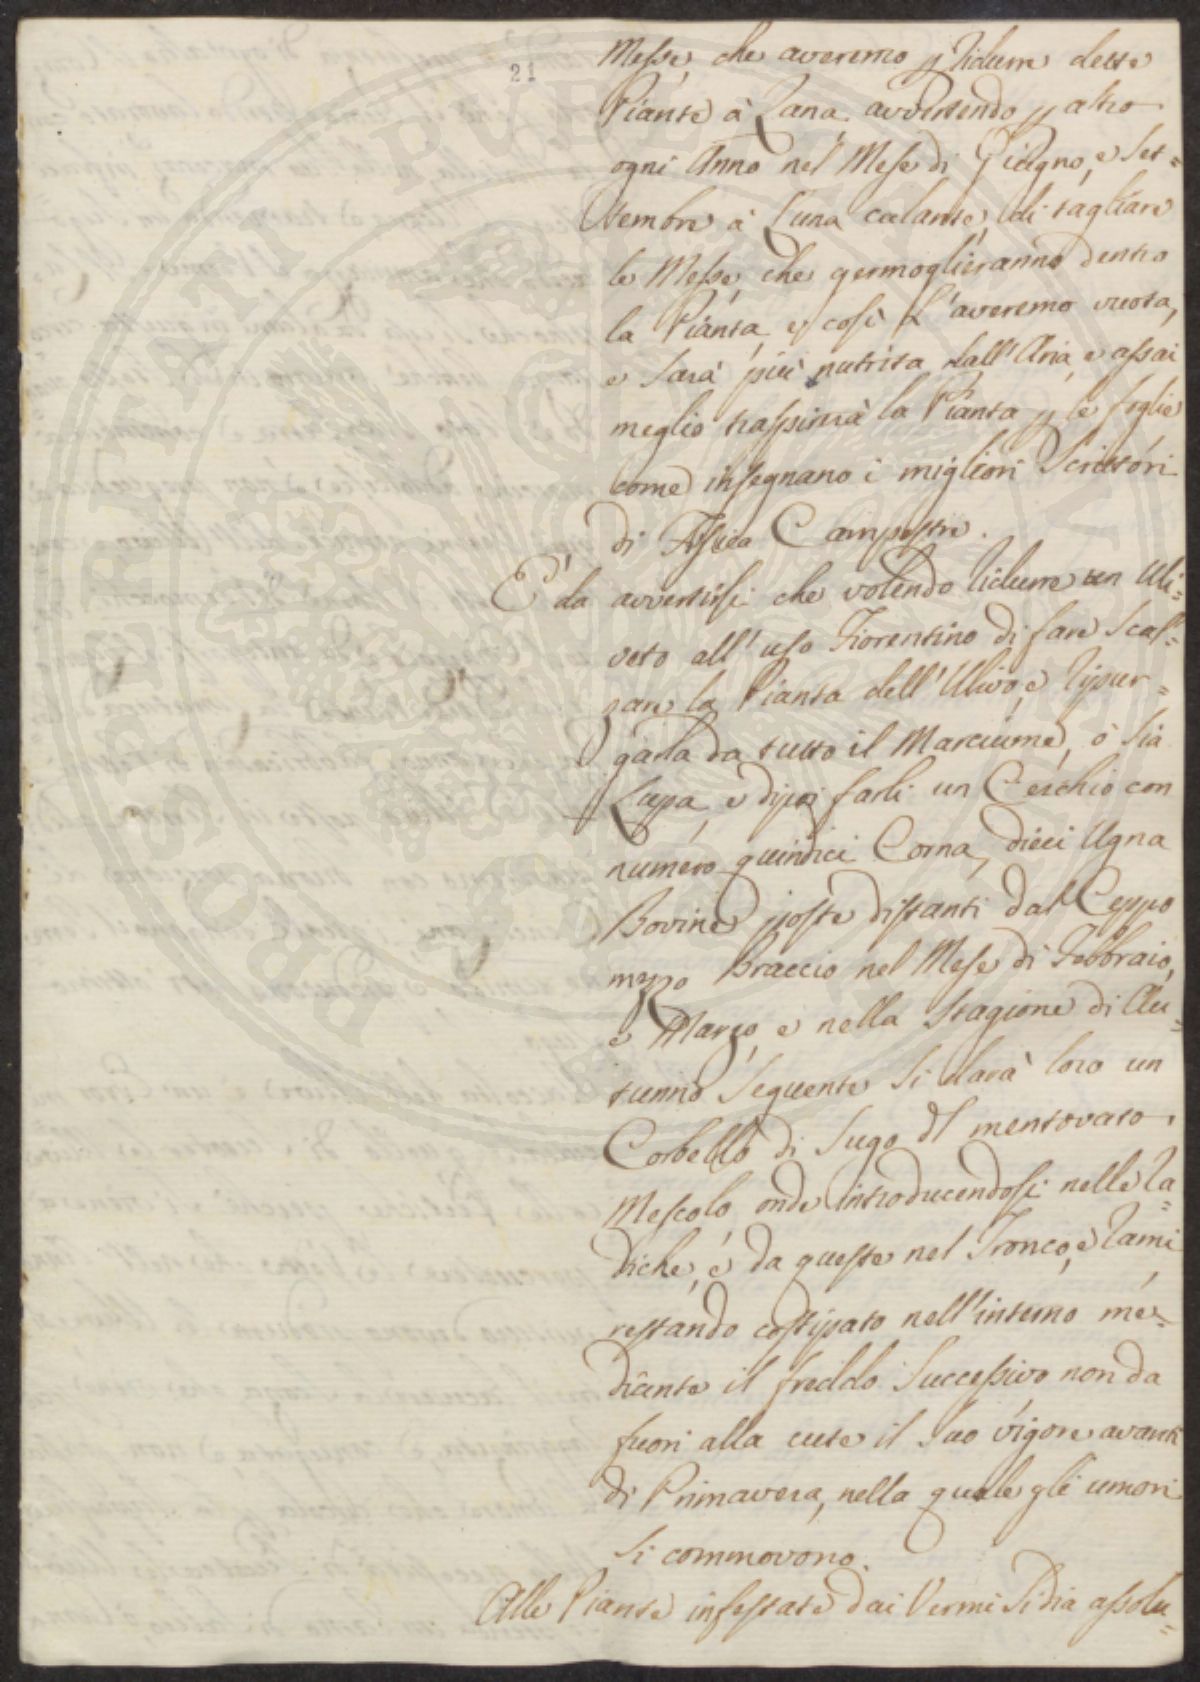 21
Messe, che averemo p ridurre dette
Piante à Zana. avvertendo p altro
ogni Anno nel Mese di Giugno, e Set=
tembre à Luna calante, di tagliare
le Messe, che germoglieranno dentro
la Pianta, e così l'averemo vuota,
e sarà più nutrita dall'Aria, e assai
meglio traspirerà la Pianta p le foglie
come insegnano i migliori Scrittori
di Fisica Campestre.
E' da avvertirsi che volendo ridurre un Uli=
veto all'uso Fiorentino di fare scal=
zare la Pianta dell'Ulivo, e ripur=
garla da tutto il Marciume, ò sia
Lupa, e dipoi farli un Cerchio con
numero quindici Corna, dieci Ugna
Bovine poste distanti dal Ceppo
mezzo Braccio nel Mese di Febbraio,
e Marzo, e nella Stagione di Au=
tunno seguente si darà loro un
Corbello di Sugo dl mentovato
Mescolo, onde introducendosi nelle ra=
diche, e da queste nel Tronco, e rami
restando costipato nell'interno me=
diante il freddo successivo non da
fuori alla cute il suo vigore avanti
di Primavera, nella quale gli umori
si commovono.
Alle Piante infestate dai Vermi si dia assolu=
PROSPERITATI PUBLICAE